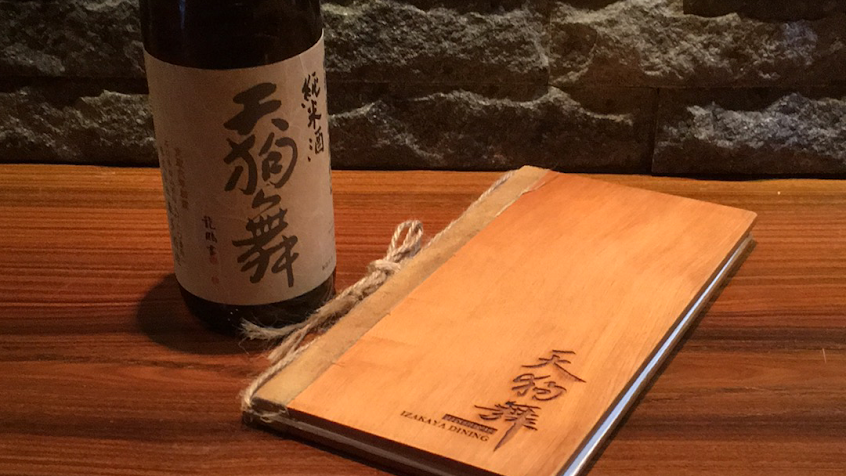 純米酒
天狗舞
天狗舞
IZAKAYA DINING